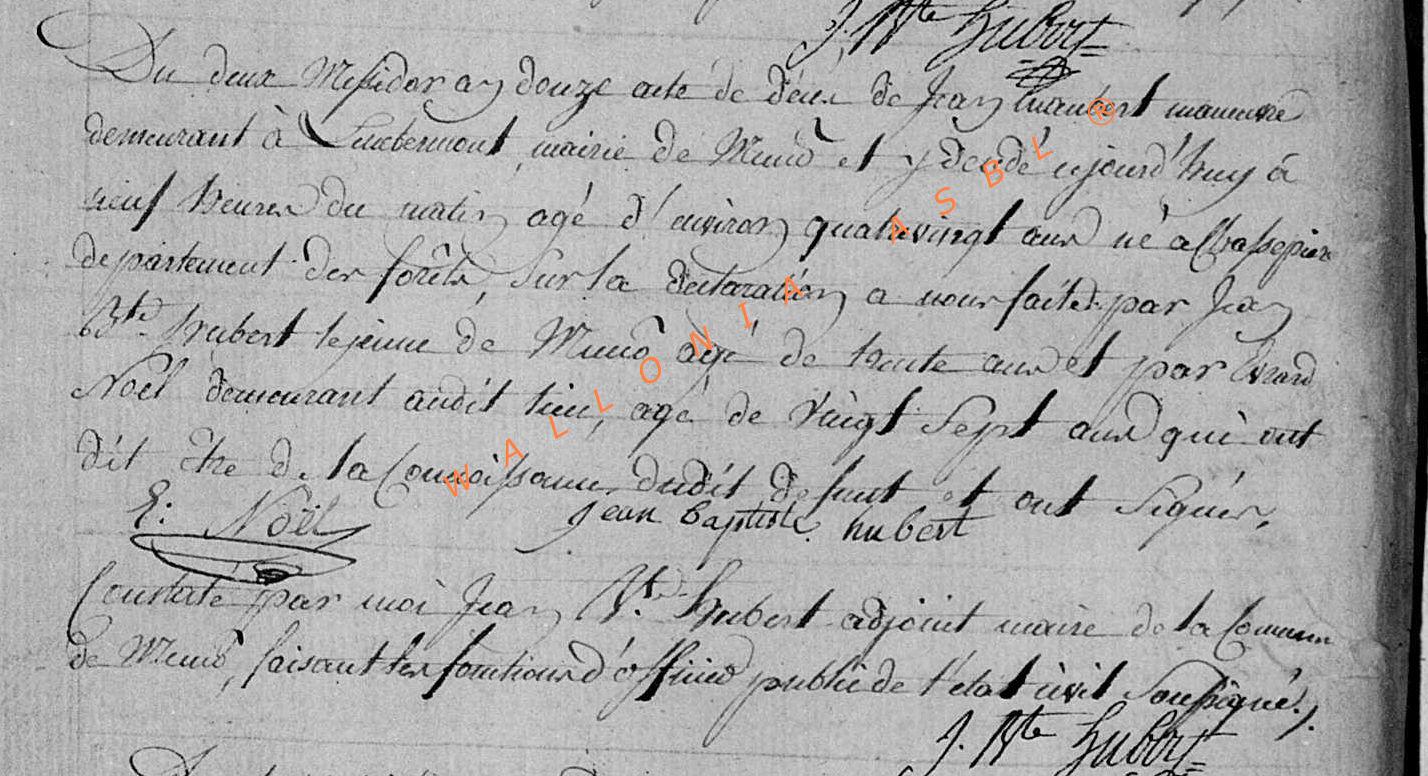 J. Bte Hubert
Du deux Messidor an douze acte de décès de Jean manœuvre
demeurant à Lambermont mairie de Muno et y décédé aujourd'huy à
neuf heures du matin agé d'environ quatrevingt ans né a Chassepierre
departement des forêts, sur la declaration a nous faites par Jean
Bte hubert le jeune de Muno agé de trente ans et par Evrard
Noël demeurant audit lieu, agé de vingt Sept ans qui ont
dit être de la Connoissance dudit defunt et ont Signés,
E: Noël Jean baptiste hubert
Constaté par moi Jean Bte Hubert adjoint maire de la Commune
de Muno, faisant les fonctions d'officier public de l'état civil Soussigné.
J. Bte Hubert
WALLONIA ASBL ®